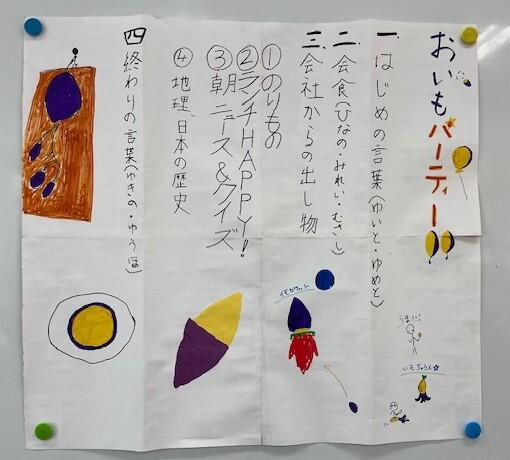 おいもパーティー!!
一、はじめの言葉(ゆいと・ゆめと)
二、会食(ひなの・みれい・むさし)
三、会社からの出し物
①のりもの
②ランチHAPPY!
③朝ニュース&クイズ
④地理、日本の歴史
四、終わりの言葉(ゆきの・ゆうほ)
うまい!
イモロケット
いもちょうん☆